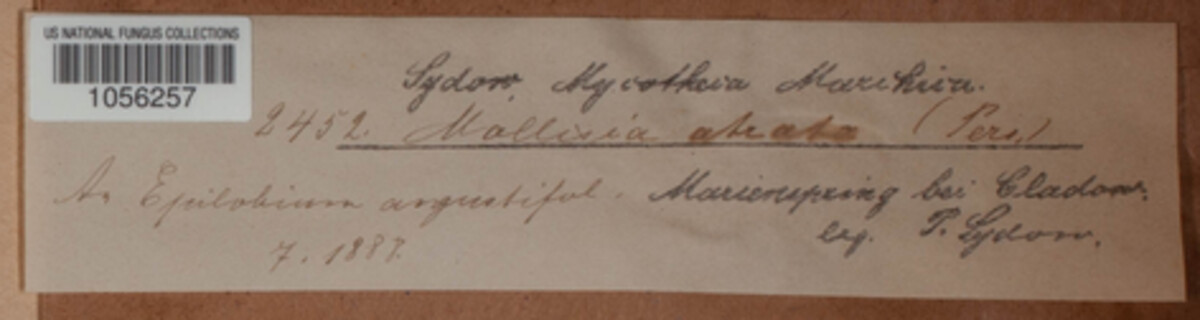 US NATIONAL FUNGUS COLLECTIONS
1056257
Sydow, Mycotheca Marchica.
2452. Mollisia atrata (Pers.)
An Epilobium angustifol. Marienspring bei Cladow.
7. 1888. leg. P. Sydow.